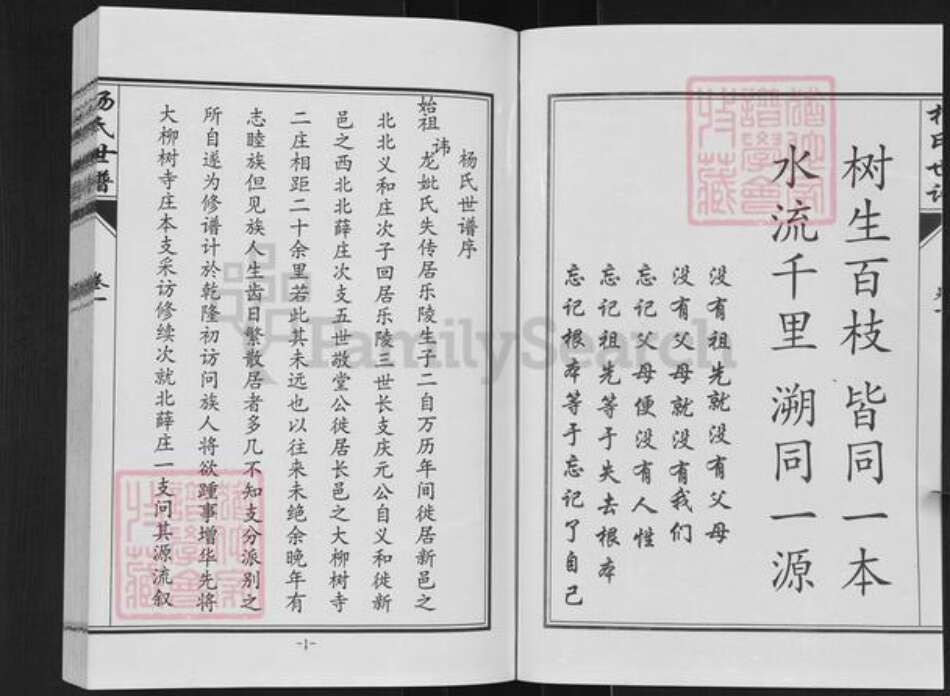 树生百枝 皆同一本
水流千里 溯同一源
没有祖先就没有父母
没有父母就没有我们
忘记父母便没有人性
忘记祖先等于失去根本
忘记根本等于忘记了自己
杨氏世谱序
始祖讳龙妣氏失传居乐陵生子二自万历年间徙居新邑之
北北义和庄次子回居乐陵三世长支庆元公自义和徙新
邑之西北北薛庄次支五世敬堂公徙居长邑之大柳树寺
二庄相距二十余里若此其未远也以往来未绝余晚年有
志睦族但见族人生齿日繁散居者多几不知支分派别之
所自遂为修谱计於乾隆初访问族人将欲踵事增华先将
大柳树寺庄本支采访修续次就北薛庄一支问其源流叙
氏世谱
卷一
-1-
FamilySearch